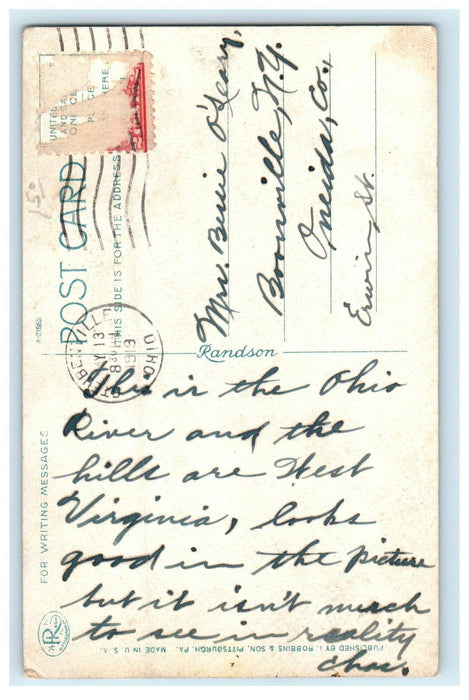 POST CARD
THIS SIDE IS FOR THE ADDRESS
UNITED
AND CA
ONE CE
HERE
15¢
A-21562
STEUBENVILLE
OHIO
MAY 13
8
Mrs. Bessie O'Leary,
Boonville, N.Y.
Oneida, Co.,
Erwin, St.
Randson
FOR WRITING MESSAGES
This is the Ohio
River and the
hills are West
Virginia, looks
good in the picture
but it isn't much
to see in reality
Chas.
PUBLISHED BY I. ROBBINS & SON, PITTSBURGH, PA. MADE IN U. S. A.